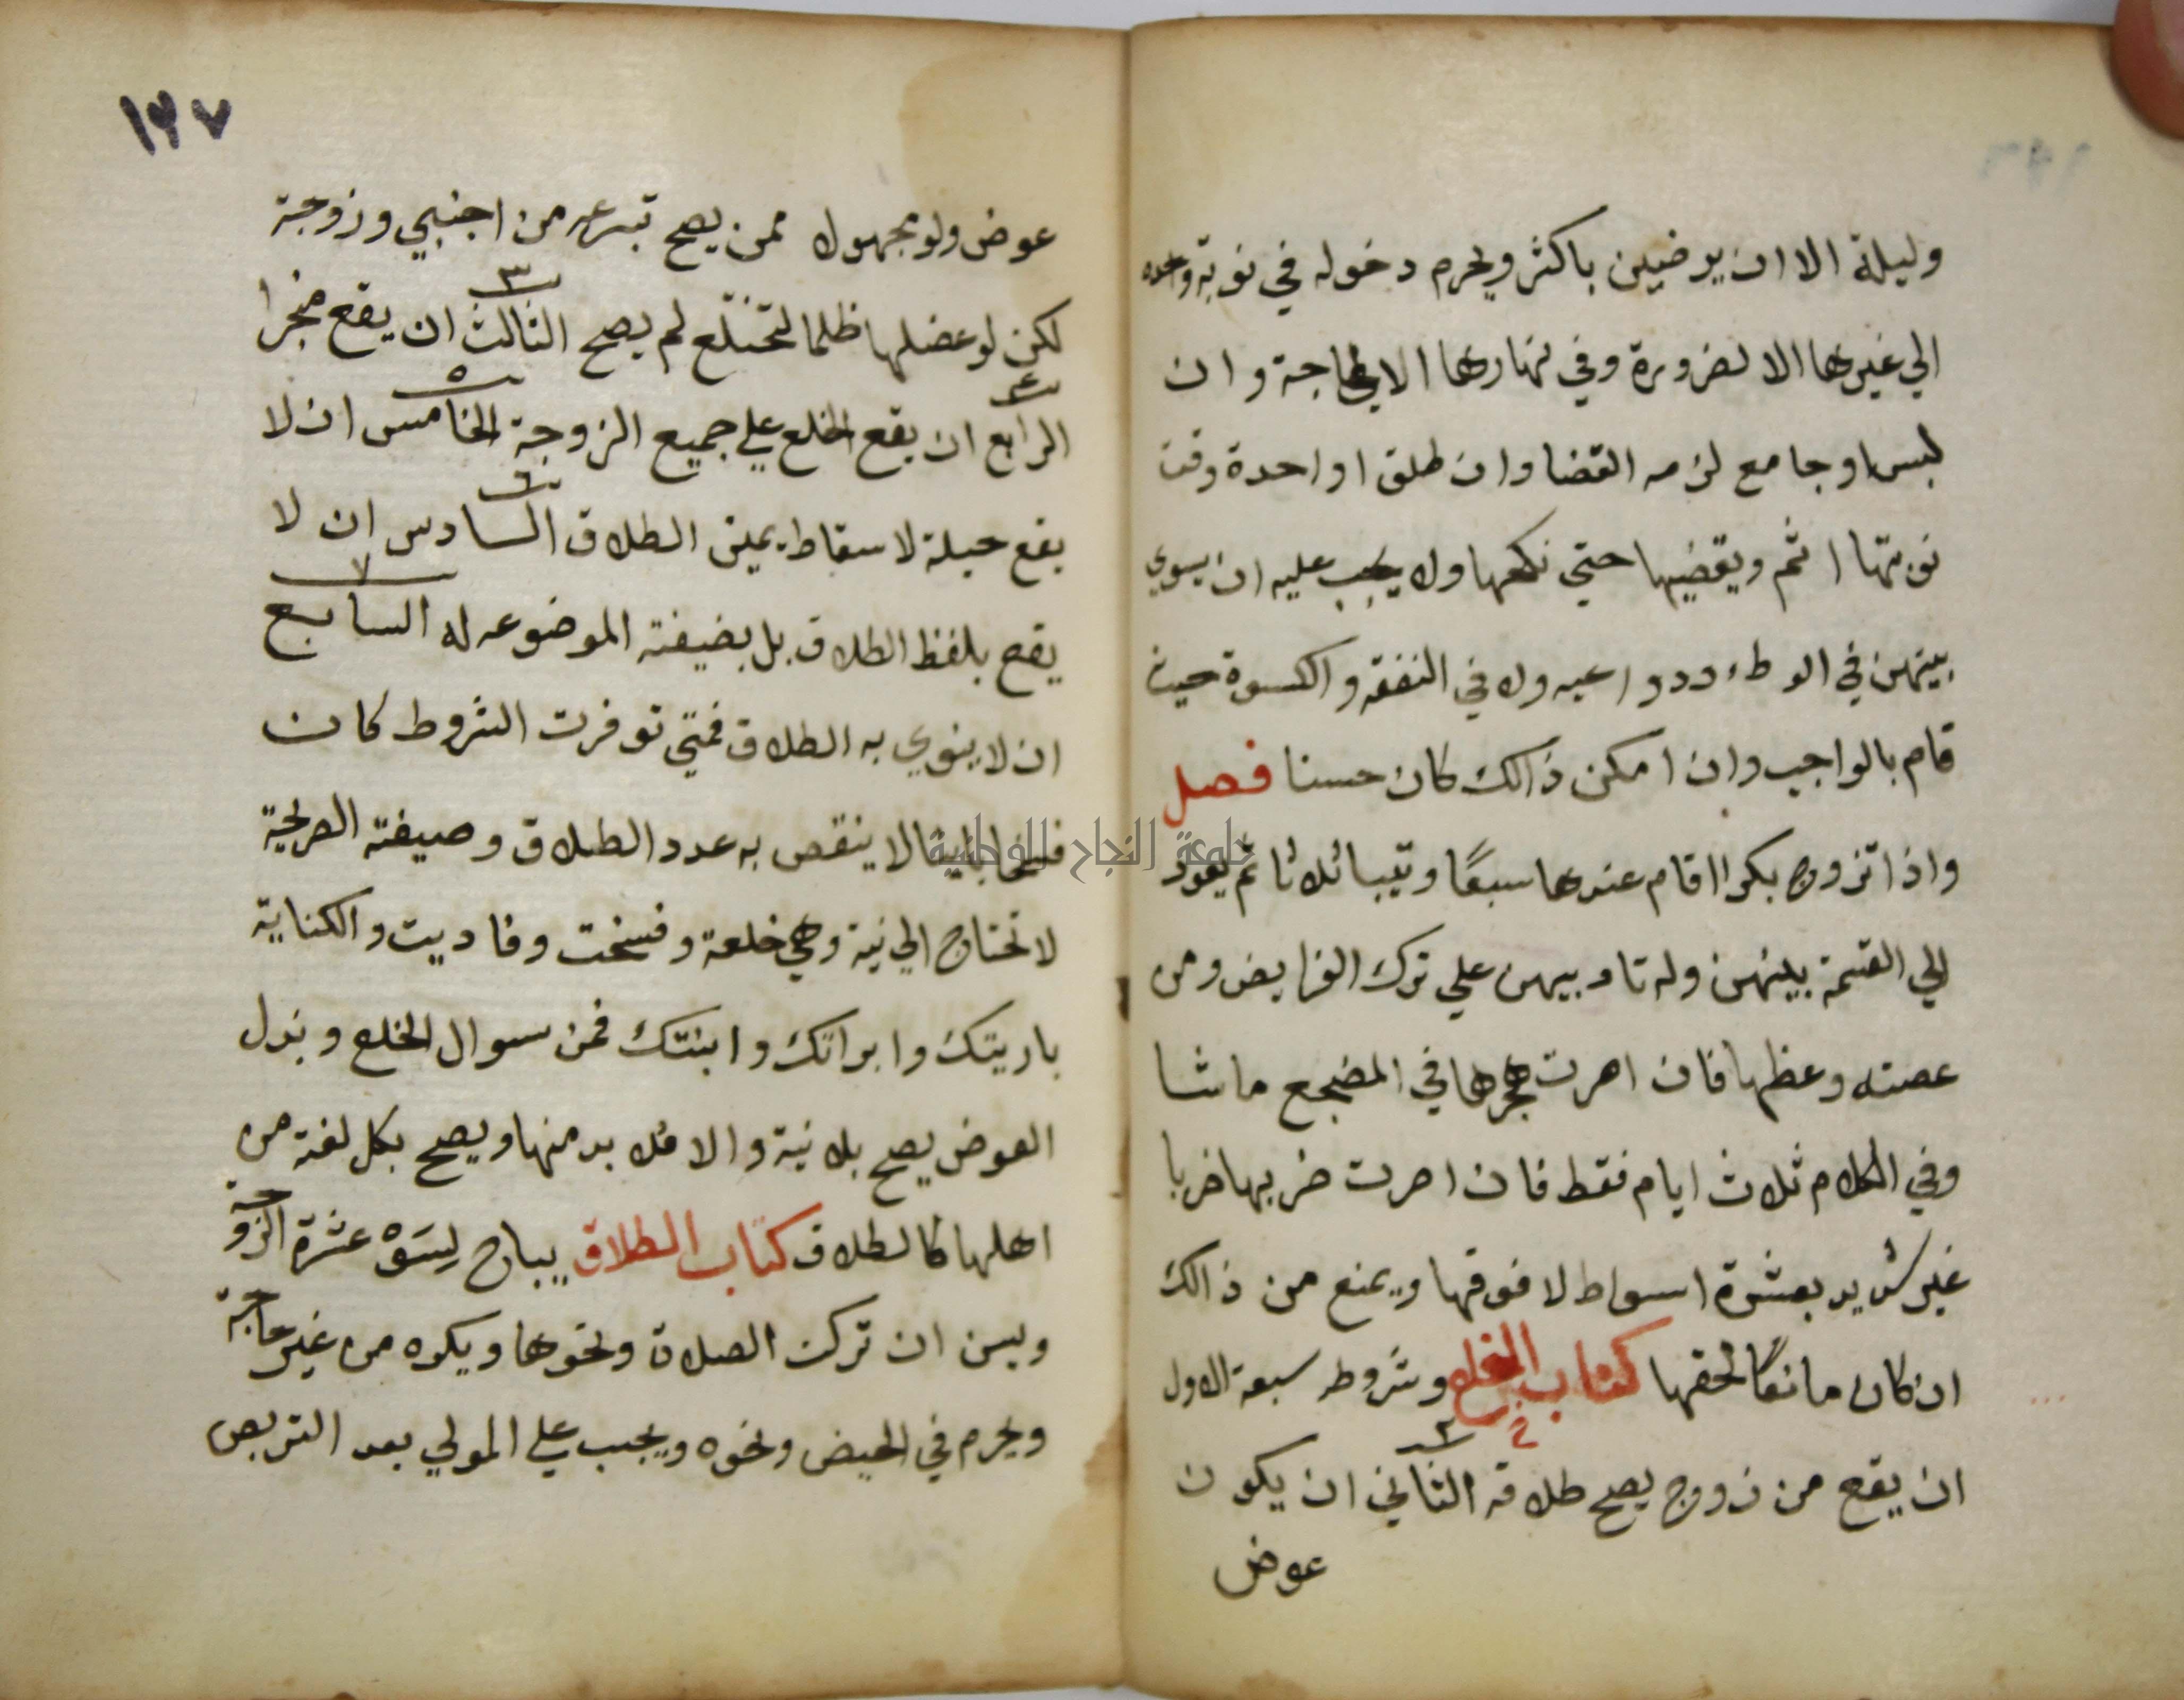 وليلة الا ان يرضين باكثر ويحرم دخوله في نوبة واحده
الي غيرها الا لضرورة وفي نهارها الا لحاجة وان
لبس او جامع لزمه القضا وان طلق واحدة وقت
نوبتها اثم ويقضيها حتي نكحها ولا يجب عليه ان يسوي
بينهن في الوطء ودواعيه ولا في النفقه والكسوة حيث
قام بالواجب وان امكن ذالك كان حسنا فصل
واذا تزوج بكرا اقام عندها سبعًا وثيبا ثلاثا ثم يعود
الي القسمة بينهن وله تاديبهن علي ترك الفرايض ومن
عصته وعظها فان اصرت هجرها في المضجع ماشا
وفي الكلام ثلاث ايام فقط فان اصرت ضربها ضربا
غير شديد بعشرة اسواط لا فوقها ويمنع من ذالك
ان كان مانعًا لحقها كتاب الخلع وشروطه سبعة الاول
٢
ان يقع من زوج يصح طلاقه الثاني ان يكون
عوض
١٦٧
عوض ولو مجهول ممن يصح تبرعه من اجنبي وزوجة
٣
لكن لو عضلها ظلما لتختلع لم يصح الثالث ان يقع منجرا
٤ ٥
الرابع ان يقع الخلع علي جميع الزوجة الخامس ان لا
٦
يقع حيلة لاسقاط يمين الطلاق السادس ان لا
٧
يقع بلفظ الطلاق بل بضيغته الموضوعه له السابع
ان لا ينوي به الطلاق فمتي توفرت الشروط كان
فسخا باينا لا ينقص به عدد الطلاق وصيغته الصريحة
لا تحتاج الي نية وهي خلعة وفسخت وفاديت والكناية
باريتك وابراتك وابنتك فمن سوال الخلع وبذل
العوض يصح بلا نية والا فلا بد منها ويصح بكل لغة من
اهلها كالطلاق كتاب الطلاق يباح لسَوْء عشرة الزوجة
ويسن ان تركت الصلاة ونحوها ويكره من غير حاجة
ويحرم في الحيض ونحوه ويجب علي المولي بعد التربص
جامعة النجاح الوطنية